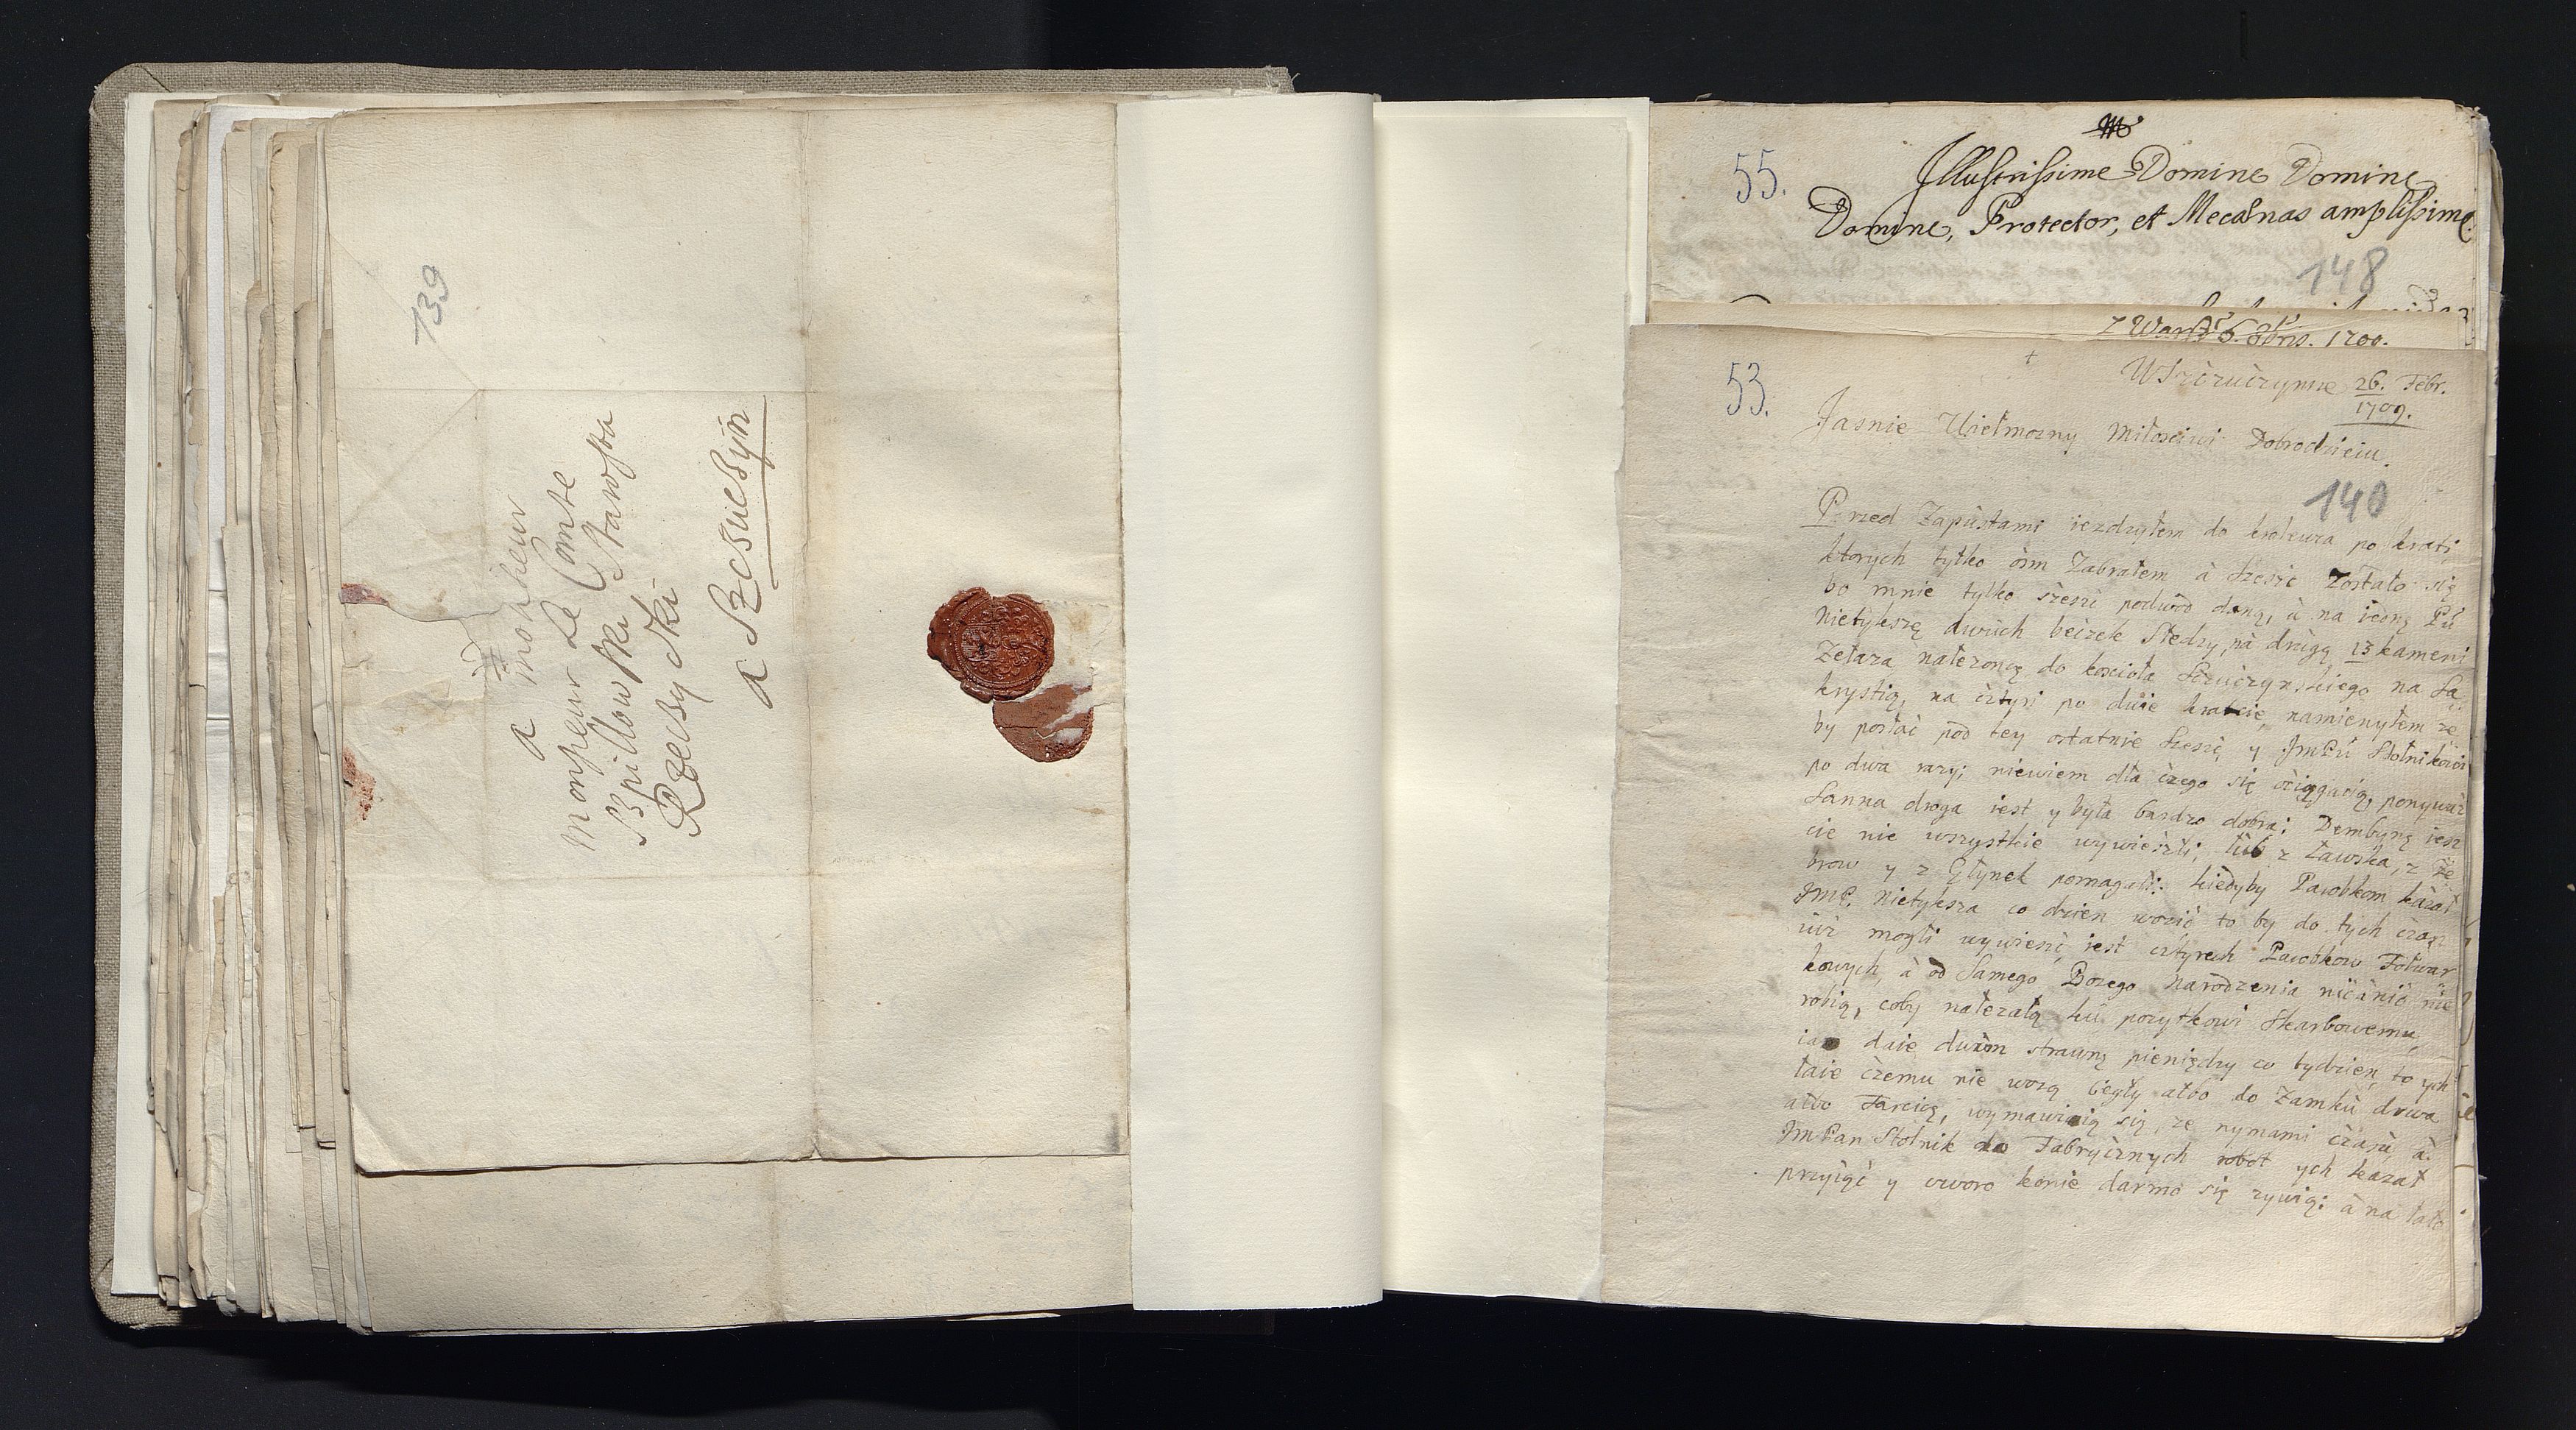 139
a monsieur
monsieur Le Comte
Szpillowski Starosta
Rzeczycki
a Szczuczyn
55.
Illustrissime Domine Domine
Domine, Protector, et Mecænas amplissime.
148
1700.
53.
W Szczuczynie 26. Febr.
1709.
Jasnie Wielmozny Miłosciwi Dobrodzieiu.
140
Przed Zapustami iezdzyłem do krolewca po kraty,
ktorych tylko osm Zabrałem à szesc Zostało się
bo mnie tylko szesc podwod daną, à na iedną
Nietykszę dwuch beczek sledzy, nà drugą 13 kameni
Zelaza nalezoncę do koscioła Szczuczynskiego na Sa
krystię, na cztyri po dwie kratcie, namienyłem ze
by posłać pod tey ostatnie szesć, y JmPu Stolnikowi
po dwa razy; niewiem dla czego się ociągaią, ponywaz
Sanna droga iest y była bardzo dobra; Dembyną iesz
cie nie wszystkie wywiezli, lub z Ławska, z Ze
brow y z Głynek pomagali: kiedyby Parobkom kazał
JMP. Nietyksza co dzien wozić to by do tych czas
iuz mogli wywiesć, iest cztyrech Parobkow Folwar
kowych, à od Samego Bozego Narodzenia nicànic nie
robią, coby nalezało ku pozytkowi Skarbowemu,
daie dwum strawną pieniędzy co tydzien, to ych
łaie czemu nie wozą Cegły albo do Zamku drwa
albo Tarcicę, wymawiaią się, ze nymami czasu, à
JmPan Stolnik do Fabrycznych robot ych kazał
przyiąć y oworo konie darmo się zywią: à na lato